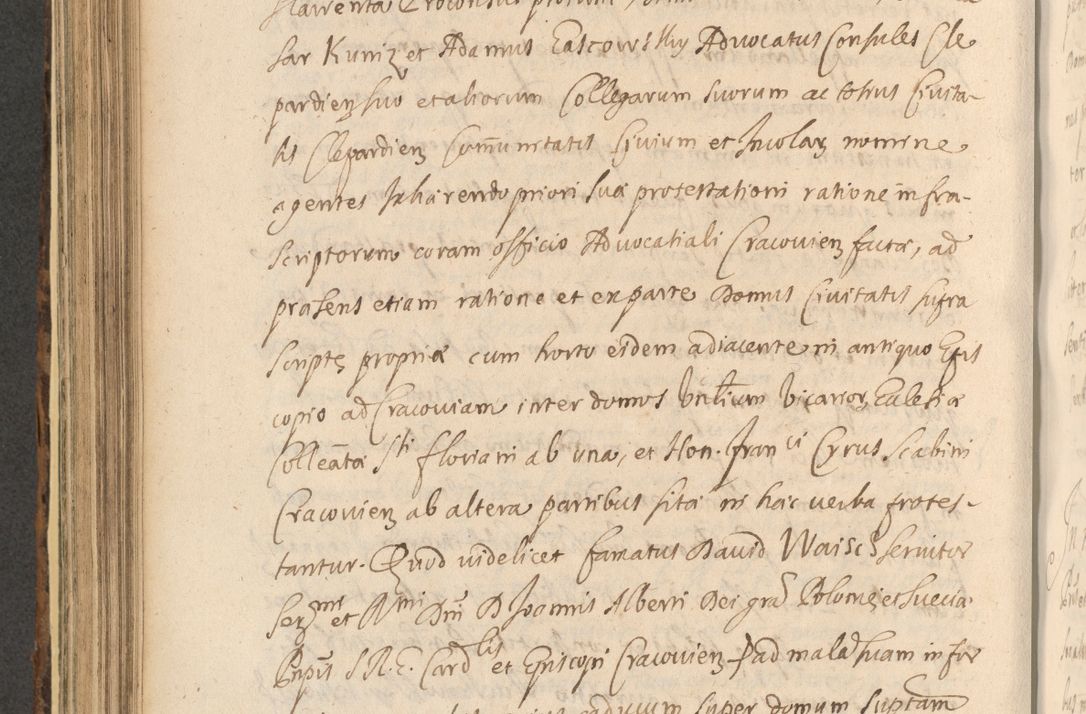 sar Kuniz et Adamus Łascowsthy Advocatus Consules Cle
pardien suo et aliorum Collegarum suorum ac totius Civita-
tis Clepardien Com̃unitatis Civium et Incolarz nomine
agentes Inhærendo priori suæ protestationi ratione infra-
scriptorum coram officio Advocatiali Cracovien factæ, ad
præsens etiam ratione et ex parte Domus Civitatis supra
scriptæ propriæ cum horto eidem adiacente in antiquo Epis
copio ad Cracoviam inter domos Vicariorz Ecclesiæ
Colleatæ Sti Floriani ab una, et Hon. Franci Cyrus Scabini
Cracovien ab altera partibus sitæ in hæc verba protes-
tantur. Quod videlicet famatus David Waisc servitor
Sermi et Rmi Dni D Joannis Alberti Dei gra Poloniæ et Sueciæ
Pnpis S R. E. Cardlis et Episcopi Cracovien ad malam suam infor
super domum suptam